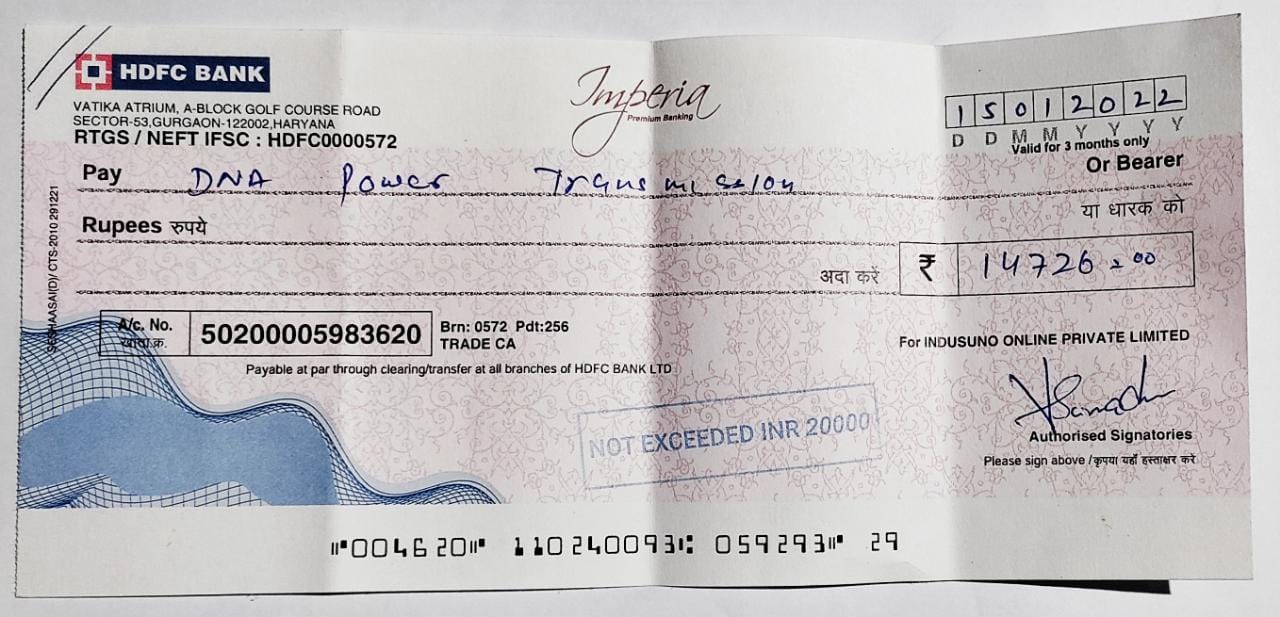 HDFC BANK
VATIKA ATRIUM, A-BLOCK GOLF COURSE ROAD
SECTOR-53,GURGAON-122002,HARYANA
RTGS / NEFT IFSC : HDFC0000572
Imperia
Premium Banking
15012022
D D M M Y Y Y Y
Valid for 3 months only
Pay DNA Power Transmission
Or Bearer
या धारक को
Rupees रुपये
अदा करें
₹ 14726=00
A/c. No.
खाता क्र.
50200005983620
Brn: 0572 Pdt:256
TRADE CA
Payable at par through clearing/transfer at all branches of HDFC BANK LTD
For INDUSUNO ONLINE PRIVATE LIMITED
NOT EXCEEDED INR 20000
Authorised Signatories
Please sign above /कृपया यहाँ हस्ताक्षर करे
⑈004620⑈ 110240093⑆ 059293⑈ 29
CTS-2010 291221